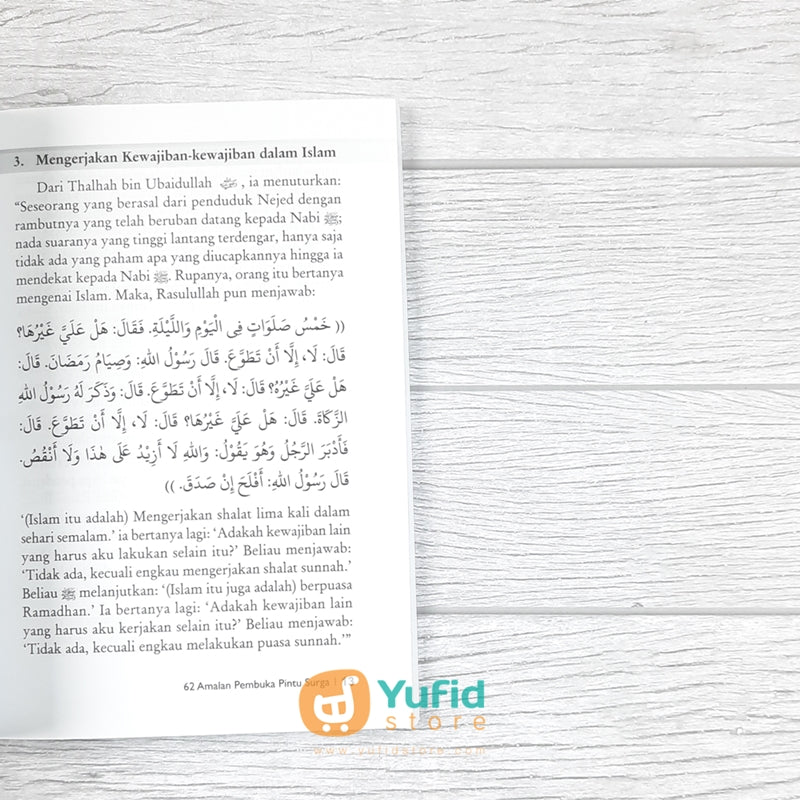 3. Mengerjakan Kewajiban-kewajiban dalam Islam
Dari Thalhah bin Ubaidullah , ia menuturkan:
“Seseorang yang berasal dari penduduk Nejed dengan
rambutnya yang telah beruban datang kepada Nabi ﷺ;
nada suaranya yang tinggi lantang terdengar, hanya saja
tidak ada yang paham apa yang diucapkannya hingga ia
mendekat kepada Nabi ﷺ. Rupanya, orang itu bertanya
mengenai Islam. Maka, Rasulullah pun menjawab:
(( خَمْسُ صَلَوَاتٍ فِى الْيَوْمِ وَاللَّيْلَةِ. فَقَالَ: هَلْ عَلَيَّ غَيْرُهَا؟
قَالَ: لَا، إِلَّا أَنْ تَطَوَّعَ. قَالَ رَسُوْلُ اللهِ: وَصِيَامُ رَمَضَانَ. قَالَ:
هَلْ عَلَيَّ غَيْرُهُ؟ قَالَ: لَا، إِلَّا أَنْ تَطَوَّعَ. قَالَ: وَذَكَرَ لَهُ رَسُوْلُ اللهِ
الزَّكَاةَ. قَالَ: هَلْ عَلَيَّ غَيْرُهَا؟ قَالَ: لَا، إِلَّا أَنْ تَطَوَّعَ. قَالَ:
فَأَدْبَرَ الرَّجُلُ وَهُوَ يَقُوْلُ: وَاللهِ لَا أَزِيْدُ عَلَى هٰذَا وَلَا أَنْقُصُ.
قَالَ رَسُوْلُ اللهِ: أَفْلَحَ إِنْ صَدَقَ. ))
‘(Islam itu adalah) Mengerjakan shalat lima kali dalam
sehari semalam.’ ia bertanya lagi: ‘Adakah kewajiban lain
yang harus aku lakukan selain itu?’ Beliau menjawab:
‘Tidak ada, kecuali engkau mengerjakan shalat sunnah.’
Beliau ﷺ melanjutkan: ‘(Islam itu juga adalah) berpuasa
Ramadhan.’ Ia bertanya lagi: ‘Adakah kewajiban lain
yang harus aku kerjakan selain itu?’ Beliau menjawab:
‘Tidak ada, kecuali engkau melakukan puasa sunnah.’”
62 Amalan Pembuka Pintu Surga |
Yufid
store
www.yufidstore.com